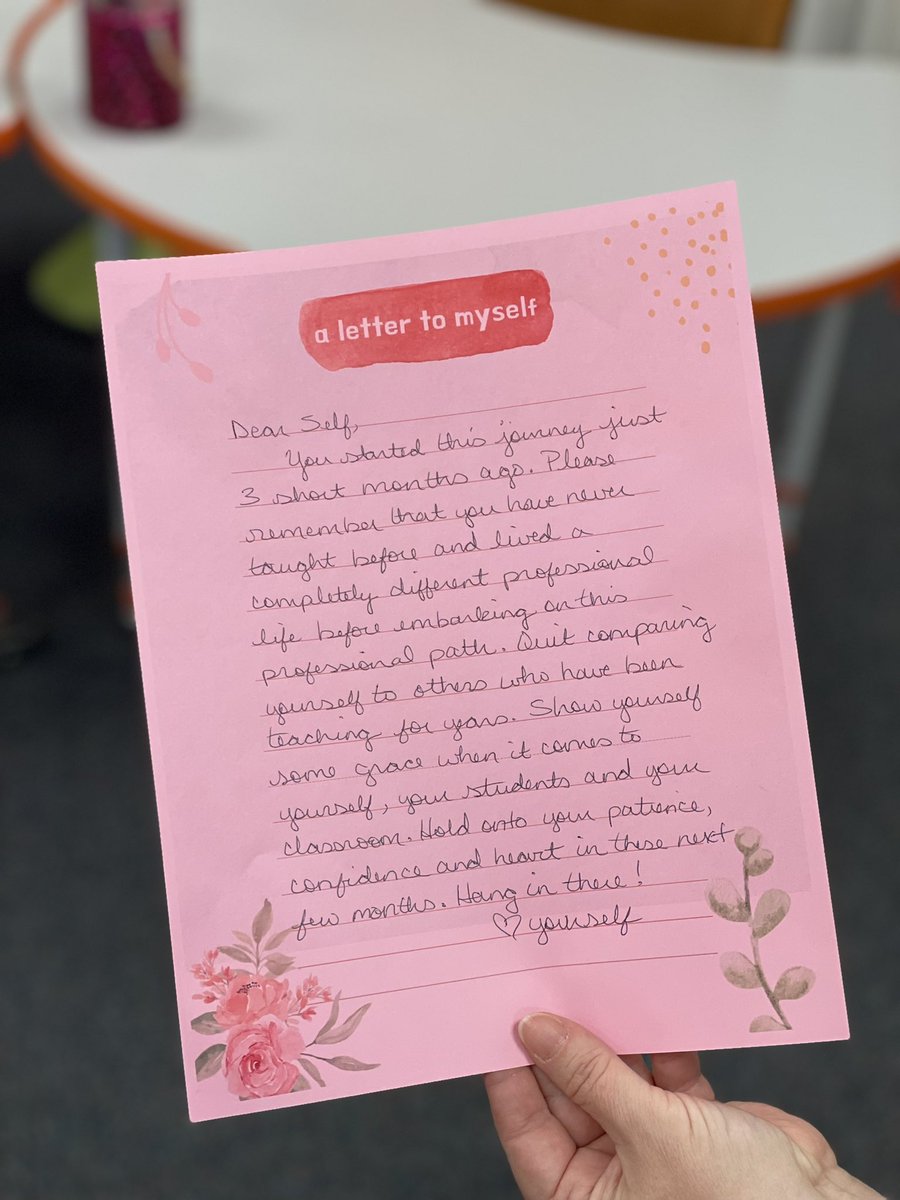 a letter to myself
Dear Self,
You started this journey just
3 short months ago. Please
remember that you have never
taught before and lived a
completely different professional
life before embarking on this
professional path. Quit comparing
yourself to others who have been
teaching for years. Show yourself
some grace when it comes to
yourself, your students and your
classroom. Hold onto your patience,
confidence and heart in these next
few months. Hang in there!
♡ yourself